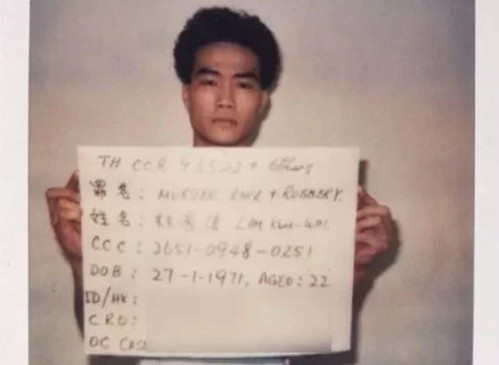 TH CCR + others
罪名 : MURDER RAPE + ROBBERY.
姓名 : 林國偉 LAM KWOK-WAI.
CCC : 2651-0948-0251
DOB : 27-1-1971, AGED : 22
ID/HK:
CRO:
OC Case